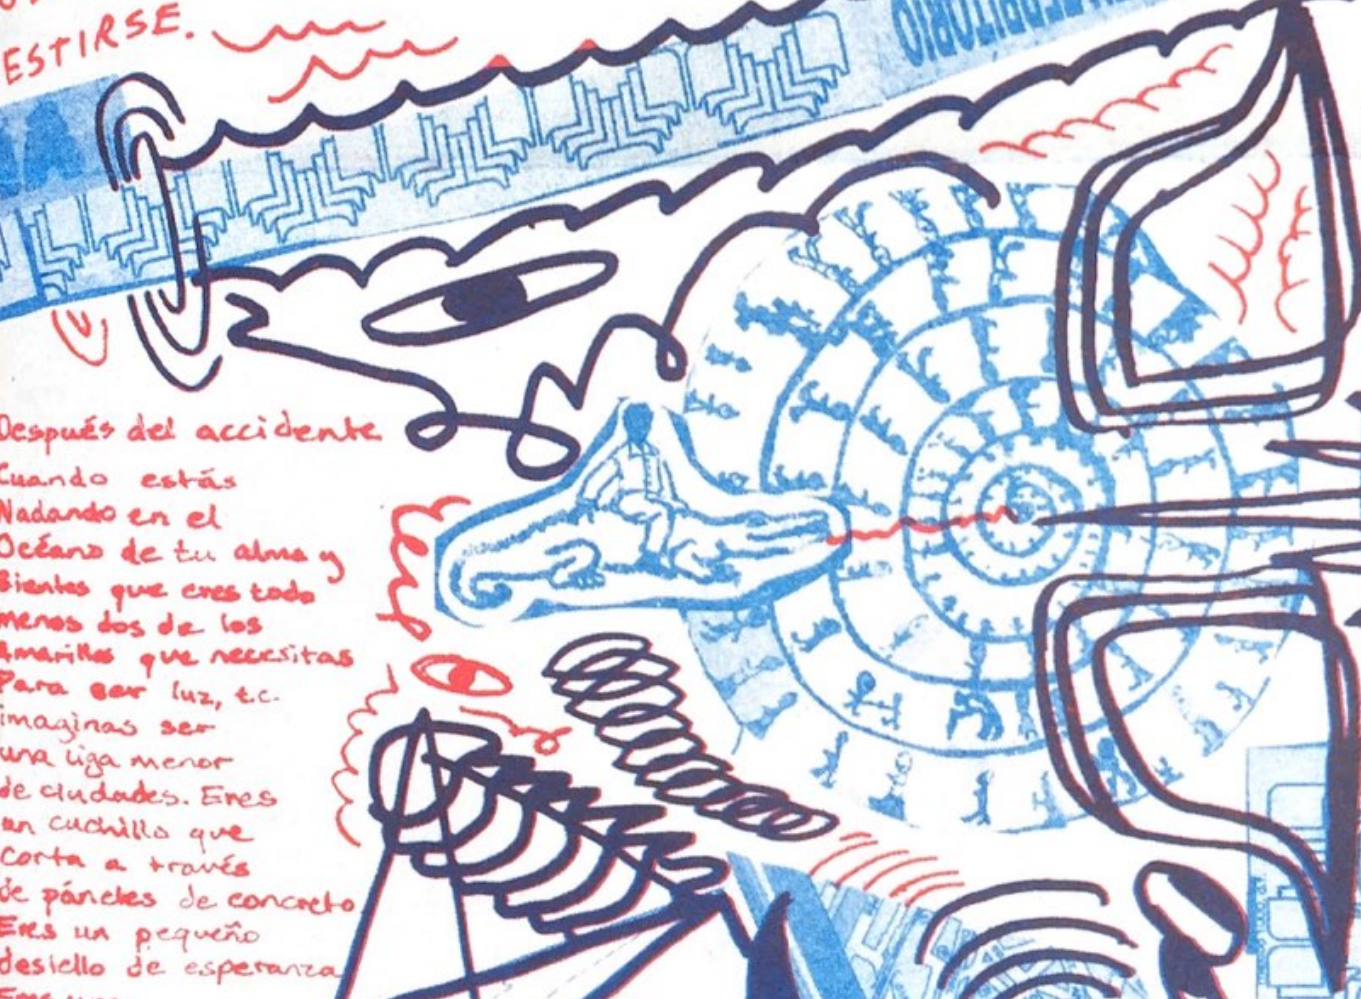 ESTIRSE.
Después del accidente
Cuando estás
Nadando en el
Océano de tu alma y
Sientes que eres todo
menos dos de los
Amarillos que necesitas
Para ser luz, t.c.
imaginas ser
una liga menor
de ciudades. Eres
un cuchillo que
corta a través
de páneles de concreto
Eres un pequeño
desiello de esperanza